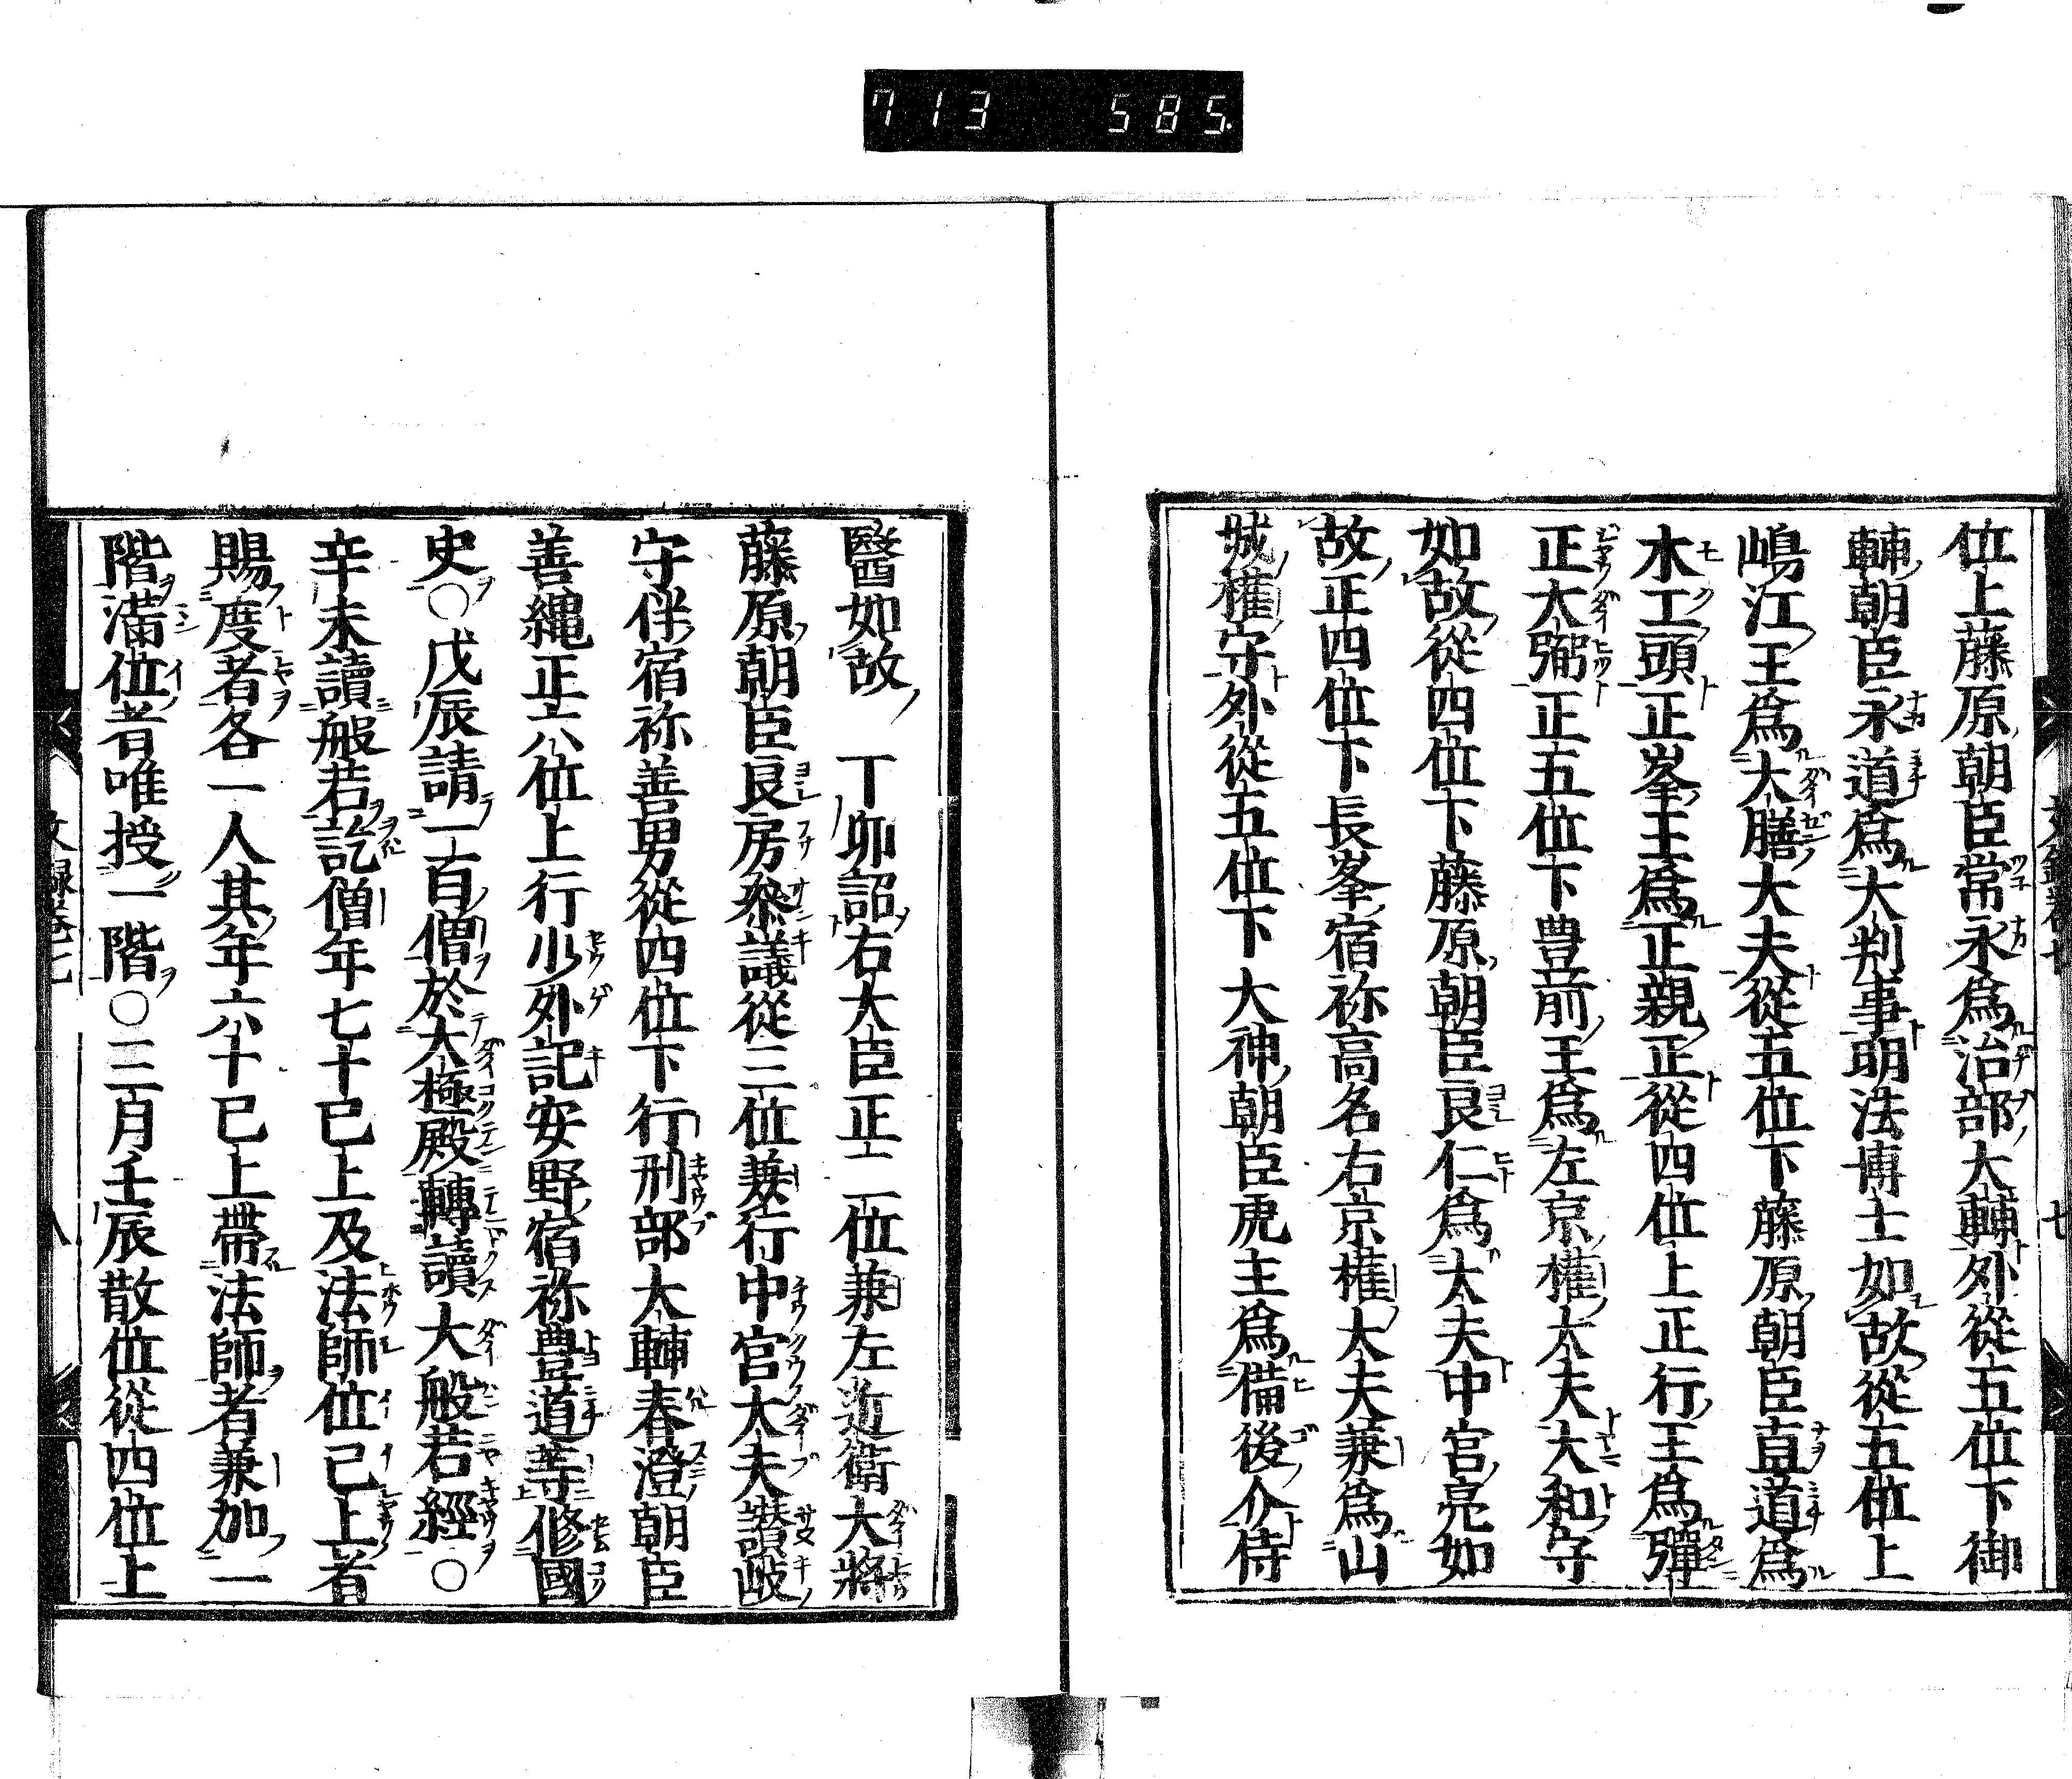 713 585
位上藤原朝臣常永爲治部大輔外從五位下御
輔朝臣永道爲大判事明法博士如故從五位上
嶋江王爲大膳大夫從五位下藤原朝臣直道爲
木工頭正峯王爲正親正從四位上正行王爲彈
正大弼正五位下豊前王爲左京權大夫大和守
如故從四位下藤原朝臣良仁爲太夫中宮亮如
故正四位下長峯宿祢高名右京權大夫兼爲山
城權守外從五位下大神朝臣虎主爲備後介侍
醫如故 丁卯詔右大臣正二位兼左近衛大將
藤原朝臣良房參議從三位兼行中宮大夫讃岐
守伴宿祢善男從四位下行刑部大輔春澄朝臣
善繩正六位上行少外記安野宿祢豊道等修國
史〇戊辰請一百僧於大極殿轉讀大般若經〇
辛未讀般若訖僧年七十已上及法師位已上者
賜度者各一人其年六十已上帶法師者兼加一
階滿位者唯授一階〇三月壬辰散位從四位上
八